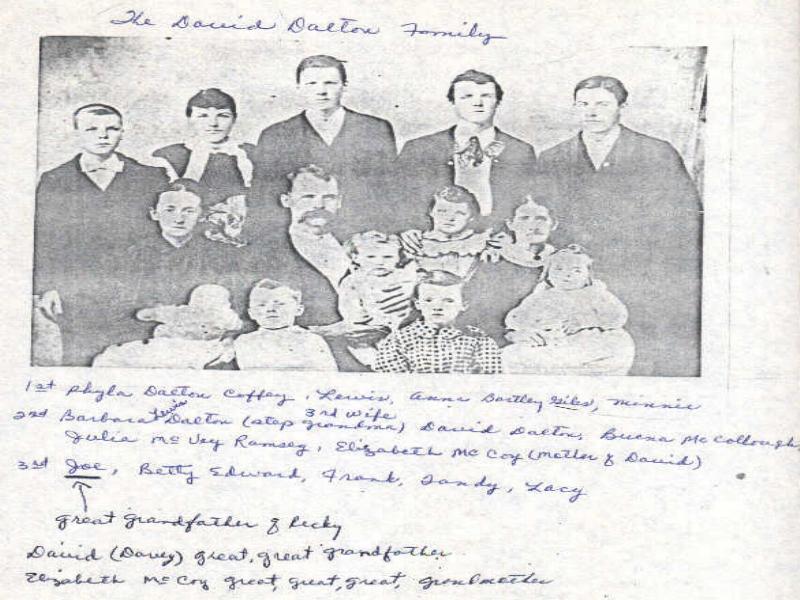 The David Dalton Family
1st Phyla Dalton Coffey, Lewis, Anna Bartley Giles, Minnie
3rd wife
2nd Barbara Dalton (step grandma) David Dalton, Buena McCollough,
Julia McVey Ramsey, Elizabeth McCoy (Mother of David)
3rd Joe, Betty Edward, Frank, Tandy, Lacy
great grandfather of Becky
David (Davey) great, great grandfather
Elizabeth McCoy great, great, great, grandmother